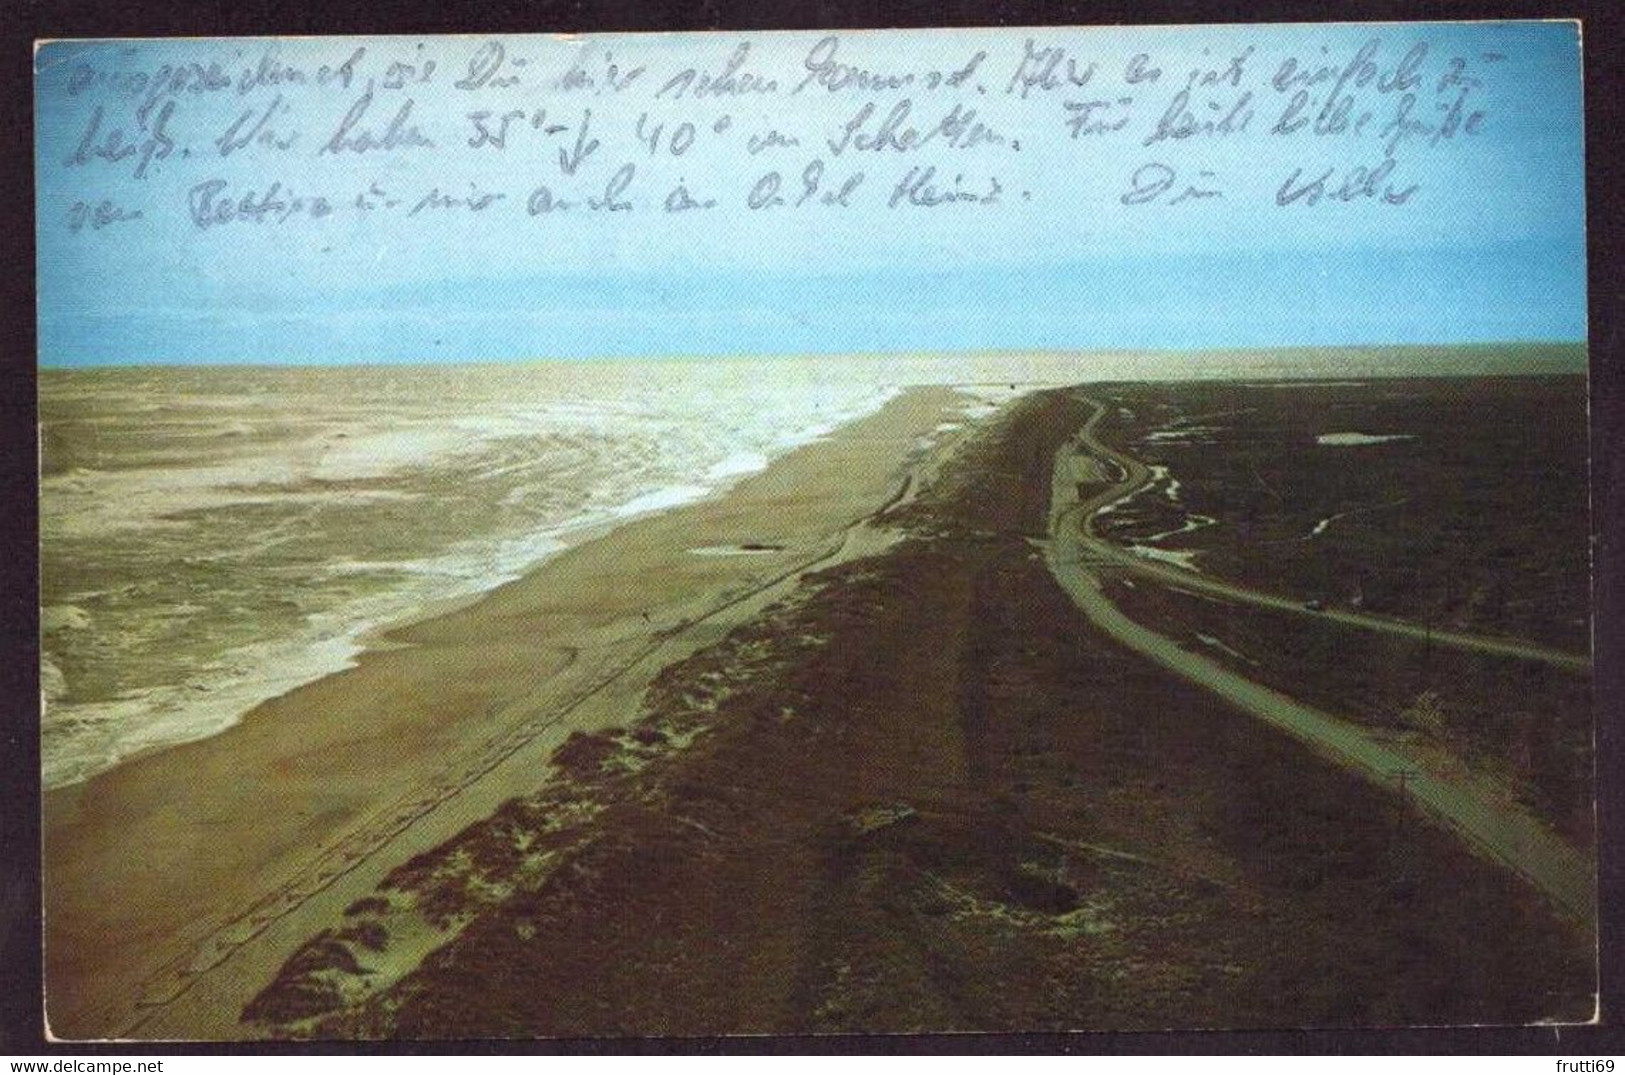 ausgezeichnet, wie Du hier sehen kannst. Aber es ist einfach zu
heiß. Wir haben 35°- 40° im Schatten. Für heute liebe Grüße
von Bettina u. mir auch an Onkel Heinz. Dein Volker
delcampe.net
frutti69